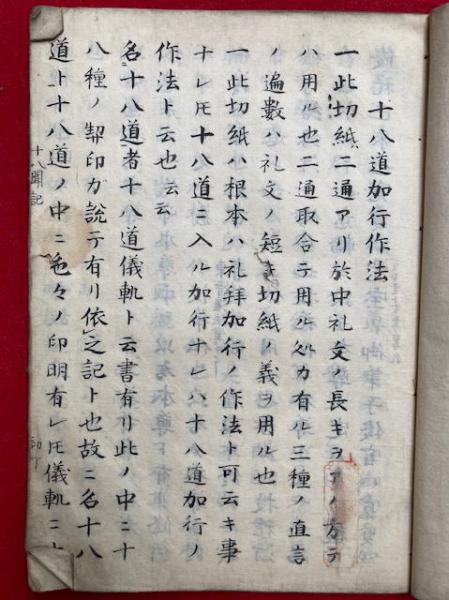 十八道加行作法
一此切紙二通アリ於中礼文ノ長キヲアノ方テ
ハ用ル也二通取合テ用ル処カ有ル三種ノ真言
ノ遍數ハ礼文ノ短キ切紙ノ義ヲ用ル也
一此切紙ハ根本ハ礼拜加行ノ作法ト可云キ事
ナレ𪜈十八道ニ入ル加行ナレハ十八道加行ノ
作法ト云也云云
名十八道者十八道儀軌ト云書有リ此ノ中ニ十
八種ノ契印ガ説テ有リ依之記ト也故ニ名十八
道ト十八道ノ中ニ色々ノ印明有レ𪜈儀軌ニ
十八聞記